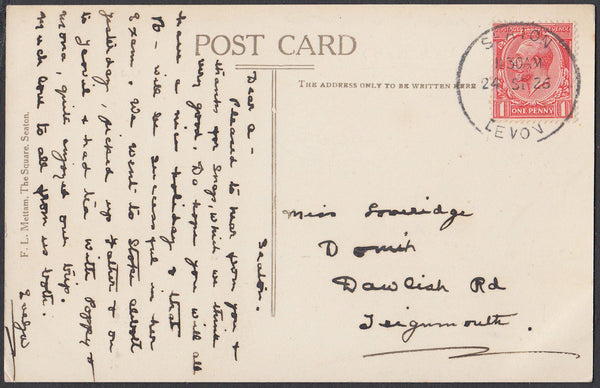 POST CARD
THE ADDRESS ONLY TO BE WRITTEN HERE
POSTAGE REVENUE
ONE PENNY
SEATON
11.30AM
24 SP 26
DEVON
F. L. Mettam, The Square, Seaton.
Seaton.
Dear a -
Pleased to hear from you &
thanks for snaps, which we think
very good. Do hope you will all
have a nice holiday & that
B - will be successful in her
Exam. We went to Stoke abbott
yesterday, picked up Father & on
to Yeovil & had tea with Poppy &
mona, quite enjoyed our trip.
much love to all from us both.
Evelyn
Miss Loveridge
Dawlish Rd
Teignmouth.